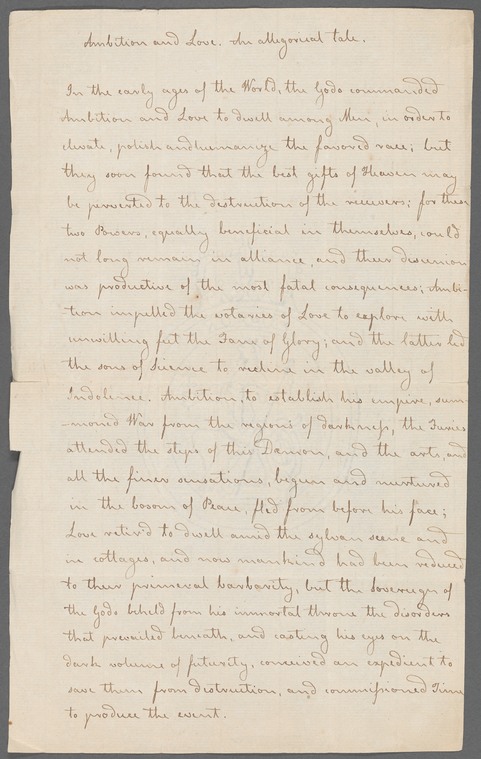 Ambition and Love. An allegorical tale.
In the early ages of the World, the Gods commanded
Ambition and Love to dwell among Men, in order to
elevate, polish and humanize the favored race; but
they soon found that the best gifts of Heaven may
be perverted to the destruction of the receivers; for these
two Powers, equally beneficial in themselves, could
not long remain in alliance, and their disunion
was productive of the most fatal consequences; Ambi-
tion impelled the votaries of Love to explore with
unwilling feet the Fane of Glory; and the latter led
the sons of Science to recline in the valley of
Indolence. Ambition, to establish his empire, sum-
-moned War from the regions of darkness, the Furies
attended the steps of this Dæmon, and the arts, and
all the finer sensations, begun and nurtured
in the bosom of Peace, fled from before his face;
Love retir'd to dwell amid the sylvan scene and
in cottages, and now mankind had been reduced
to their primeval barbarity, but the Sovereign of
the Gods beheld from his immortal throne the disorders
that prevailed beneath, and casting his eyes on the
dark volume of futurity, conceived an expedient to
save them from destruction, and commissioned Time
to produce the event.